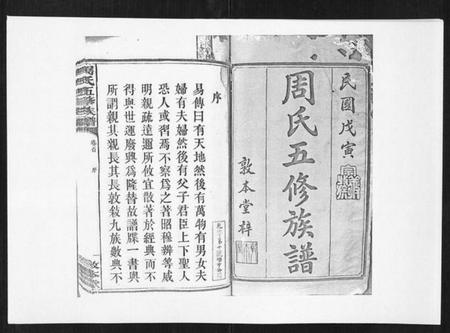 民國戊寅
周氏五修族譜
敦本堂梓
序
易傳曰有天地然後有萬物有男女夫
婦有夫婦然後有父子君臣上下聖人
恐人或對焉不察為之著昭穆辨等威
明親疏達邇所攸宜散著於經典而不
得與世運廢興為隆替故譜牒一書與
所謂親其親長其長敦敍九族數典不
周氏五修族譜
卷首 序
敦本堂